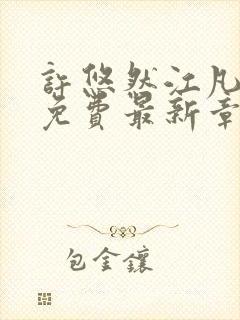 許悠然江凡
免費最新章
包金鑲